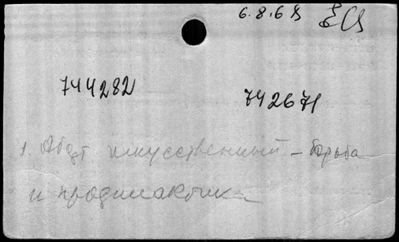 6.8.68
744282 742671
1. Аборт искусственный – борьба
и профилактика